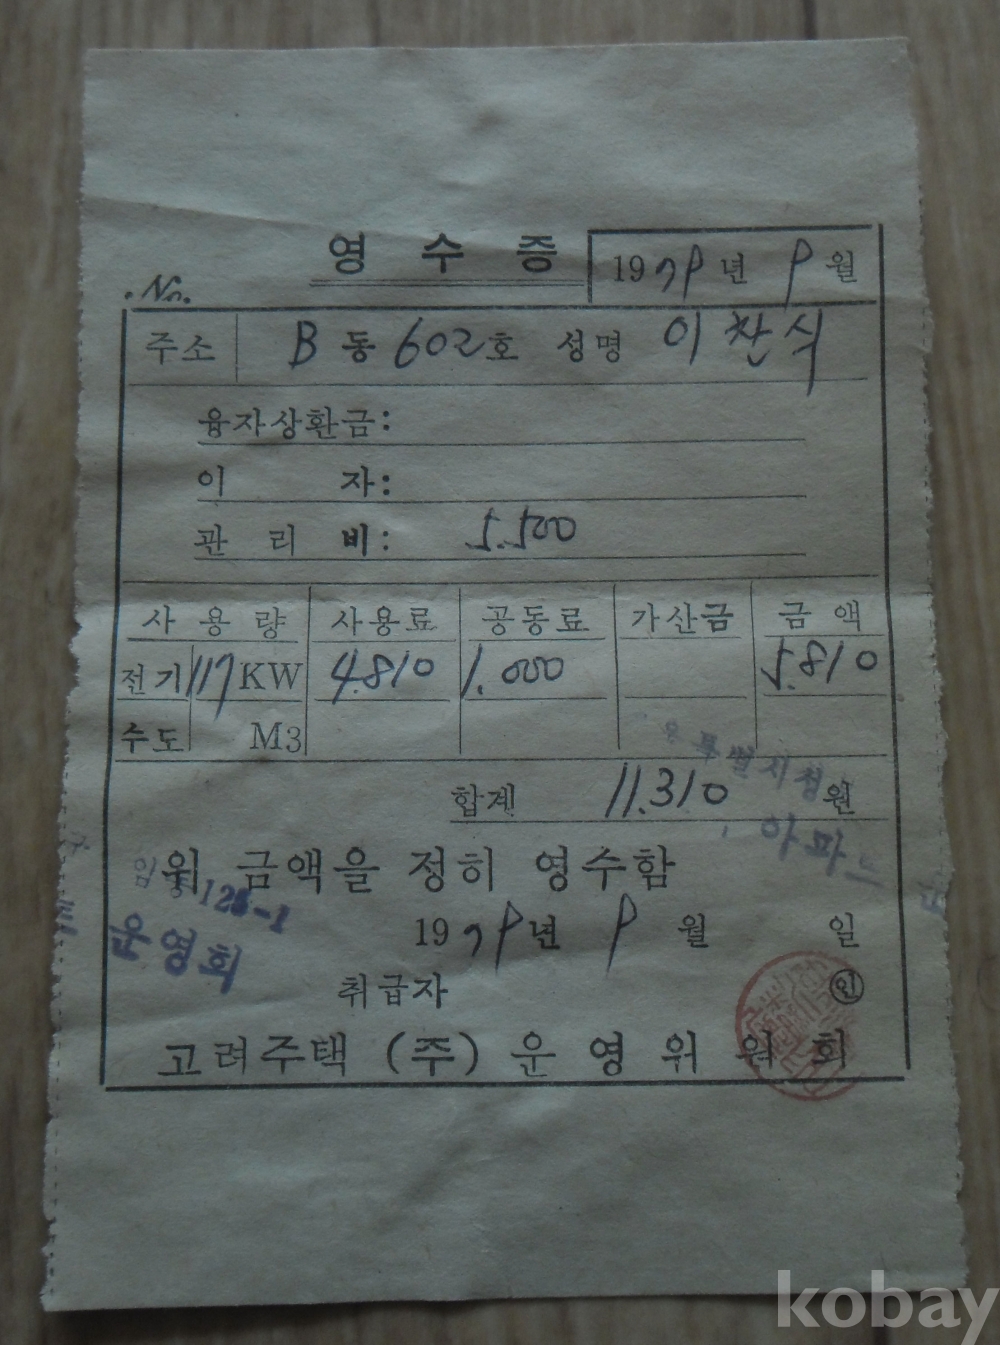 영 수 증
1979년 9월
No.
주소 B동 602호 성명 이찬식
융자상환금:
이 자:
관 리 비: 5.500
사 용 량 사용료 공동료 가산금 금 액
전기 117 KW 4.810 1.000 5.810
수도 M3
특별시
합계 11.310 원
아파트
위 금액을 정히 영수함
128-1
1979년 9월 일
운영회
취급자 인
고려주택 (주) 운영위원회
kobay